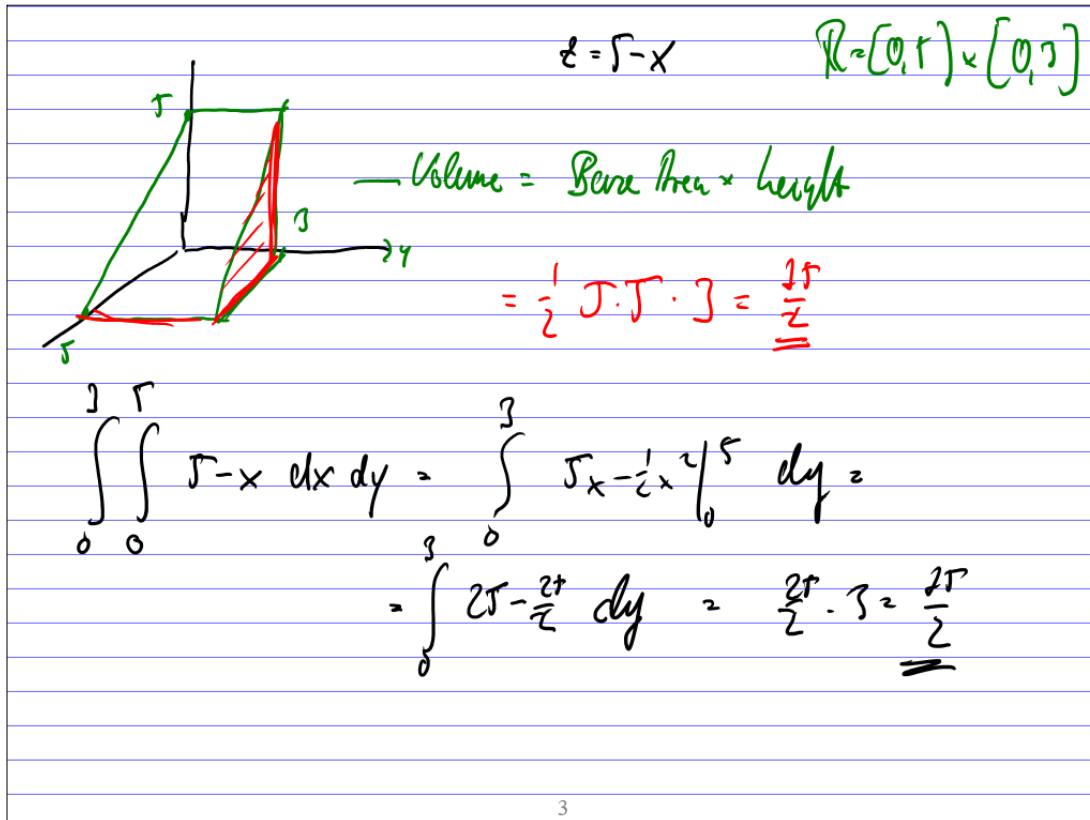 z = 5-x R = [0,5] × [0,3]
5
Volume = Base Area × height
3
y
= 1/2 5·5·3 = 75/2
5
∫_0^3 ∫_0^5 5-x dx dy = ∫_0^3 5x - 1/2 x^2 |_0^5 dy =
= ∫_0^3 25 - 25/2 dy = 25/2 · 3 = 75/2
3